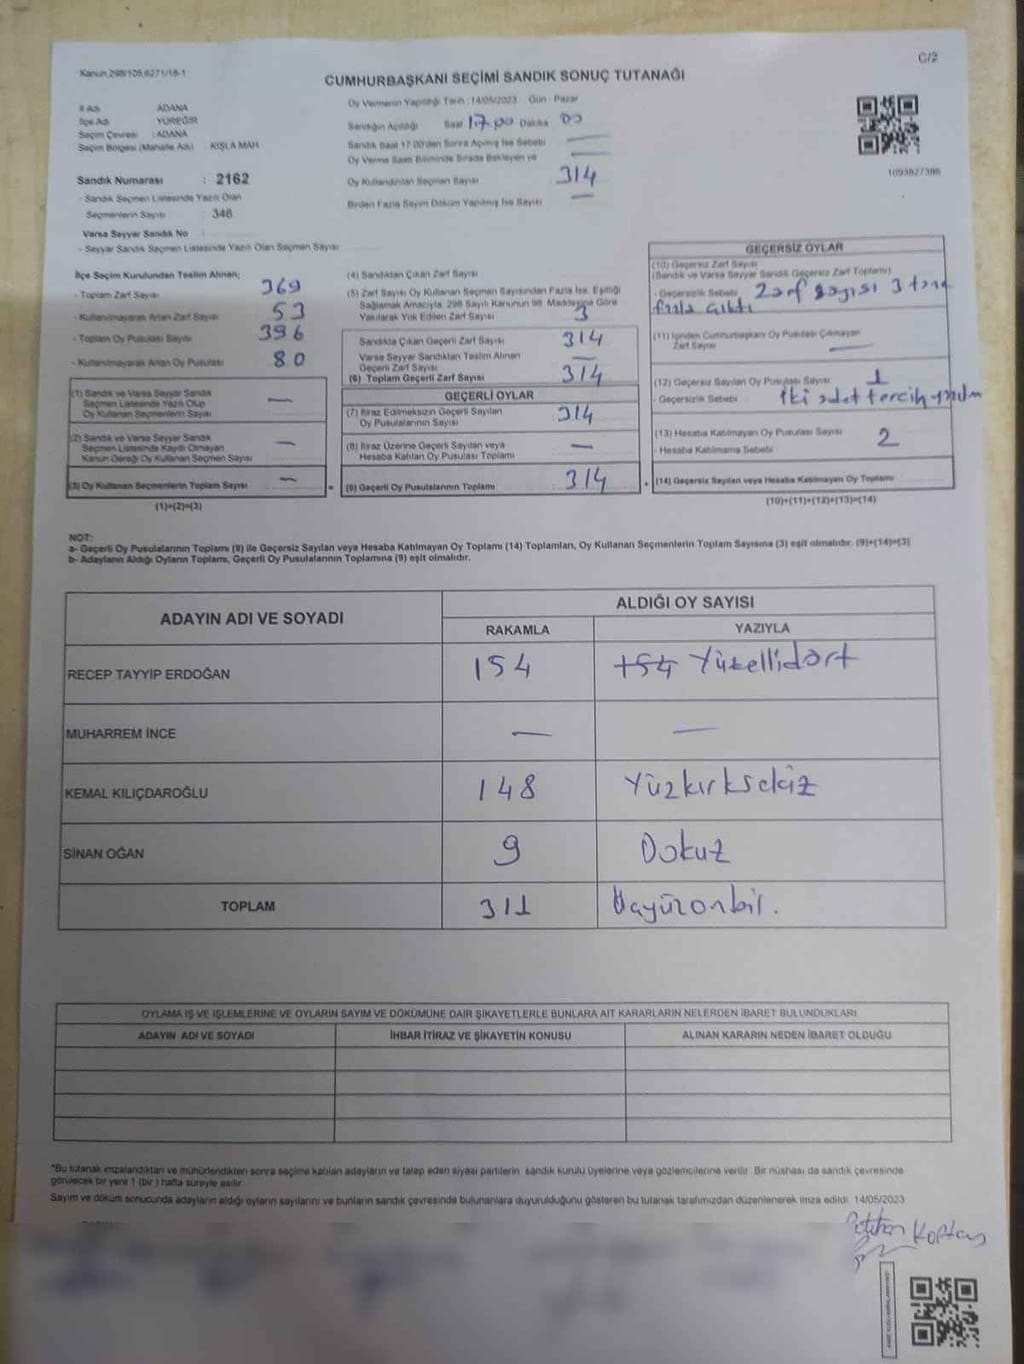 Kanun,298/105,6271/18-1
C/2
CUMHURBAŞKANI SEÇİMİ SANDIK SONUÇ TUTANAĞI
İl Adı ADANA
İlçe Adı YÜREĞİR
Seçim Çevresi : ADANA
Seçim Bölgesi (Mahalle Adı) : KIŞLA MAH.
Sandık Numarası : 2162
Sandık Seçmen Listesinde Yazılı Olan
Seçmenlerin Sayısı : 346
Varsa Seyyar Sandık No
- Seyyar Sandık Seçmen Listesinde Yazılı Olan Seçmen Sayısı
Oy Vermenin Yapıldığı Tarih : 14/05/2023 Gün : Pazar
Sandığın Açıldığı Saat 17.00 Dakika 00
Sandık Saat 17:00'den Sonra Açılmış İse Sebebi —
Oy Verme Saati Bitiminde Sırada Bekleyen ve —
Oy Kullandırılan Seçmen Sayısı 314
Birden Fazla Sayım Döküm Yapılmış İse Sayısı —
1093827386
İlçe Seçim Kurulundan Teslim Alınan;
- Toplam Zarf Sayısı 369
- Kullanılmayarak Artan Zarf Sayısı 53
- Toplam Oy Pusulası Sayısı 396
- Kullanılmayarak Artan Oy Pusulası 80
(1) Sandık ve Varsa Seyyar Sandık
Seçmen Listesinde Yazılı Olup
Oy Kullanan Seçmenlerin Sayısı —
(2) Sandık ve Varsa Seyyar Sandık
Seçmen Listesinde Kayıtlı Olmayan
Kanun Gereği Oy Kullanan Seçmen Sayısı —
(3) Oy Kullanan Seçmenlerin Toplam Sayısı —
(1)+(2)=(3)
(4) Sandıktan Çıkan Zarf Sayısı
(5) Zarf Sayısı Oy Kullanan Seçmen Sayısından Fazla İse, Eşitliği
Sağlamak Amacıyla, 298 Sayılı Kanunun 98. Maddesine Göre
Yakılarak Yok Edilen Zarf Sayısı 3
Sandıkta Çıkan Geçerli Zarf Sayısı 314
Varsa Seyyar Sandıktan Teslim Alınan
Geçerli Zarf Sayısı —
(6) Toplam Geçerli Zarf Sayısı 314
GEÇERLİ OYLAR
(7) İtiraz Edilmeksizin Geçerli Sayılan
Oy Pusulasının Sayısı 314
(8) İtiraz Üzerine Geçerli Sayılan veya
Hesaba Katılan Oy Pusulası Toplamı —
(9) Geçerli Oy Pusulalarının Toplamı 314
GEÇERSİZ OYLAR
(10) Geçersiz Zarf Sayısı
(Sandık ve Varsa Seyyar Sandık Geçersiz Zarf Toplamı)
- Geçersizlik Sebebi Zarf sayısı 3 tane
fazla çıktı
(11) İçinden Cumhurbaşkanı Oy Pusulası Çıkmayan
Zarf Sayısı —
(12) Geçersiz Sayılan Oy Pusulası Sayısı 1
- Geçersizlik Sebebi İki adet tercih yapılm
(13) Hesaba Katılmayan Oy Pusulası Sayısı 2
- Hesaba Katılmama Sebebi
(14) Geçersiz Sayılan veya Hesaba Katılmayan Oy Toplamı
(10)+(11)+(12)+(13)=(14)
NOT:
a- Geçerli Oy Pusulalarının Toplamı (9) ile Geçersiz Sayılan veya Hesaba Katılmayan Oy Toplamı (14) Toplamları, Oy Kullanan Seçmenlerin Toplam Sayısına (3) eşit olmalıdır. (9)+(14)=(3)
b- Adayların Aldığı Oyların Toplamı, Geçerli Oy Pusulalarının Toplamına (9) eşit olmalıdır.
ADAYIN ADI VE SOYADI
ALDIĞI OY SAYISI
RAKAMLA YAZIYLA
RECEP TAYYİP ERDOĞAN 154 154 Yüzellidört
MUHARREM İNCE — —
KEMAL KILIÇDAROĞLU 148 Yüzkırksekiz
SİNAN OĞAN 9 Dokuz
TOPLAM 311 Üçyüzonbir.
OYLAMA İŞ VE İŞLEMLERİNE VE OYLARIN SAYIM VE DÖKÜMÜNE DAİR ŞİKAYETLERLE BUNLARA AİT KARARLARIN NELERDEN İBARET BULUNDUKLARI
ADAYIN ADI VE SOYADI İHBAR İTİRAZ VE ŞİKAYETİN KONUSU ALINAN KARARIN NEDEN İBARET OLDUĞU
*Bu tutanak imzalandıktan ve mühürlendikten sonra seçime katılan adayların ve talep eden siyasi partilerin, sandık kurulu üyelerine veya gözlemcilerine verilir. Bir nüshası da sandık çevresinde
görülecek bir yere 1 (bir) hafta süreyle asılır.
Sayım ve döküm sonucunda adayların aldığı oyların sayılarını ve bunların sandık çevresinde bulunanlara duyurulduğunu gösteren bu tutanak tarafımızdan düzenlenerek imza edildi. 14/05/2023